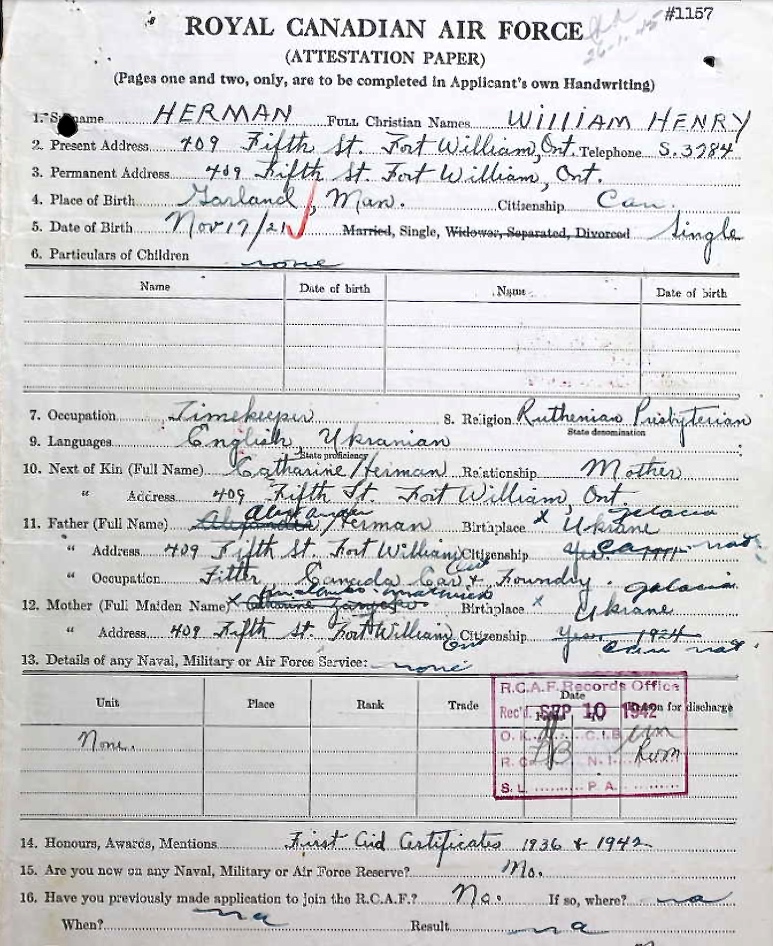 #1157
ROYAL CANADIAN AIR FORCE
26-1-45
(ATTESTATION PAPER)
(Pages one and two, only, are to be completed in Applicant's own Handwriting)
1. Surname HERMAN FULL Christian Names WILLIAM HENRY
2. Present Address 409 Fifth St. Fort William, Ont. Telephone S. 3784
3. Permanent Address 409 Fifth St. Fort William, Ont.
4. Place of Birth Garland, Man. Citizenship Can.
5. Date of Birth Nov 17/21 Married, Single, Widower, Separated, Divorced Single
6. Particulars of Children none
Name Date of birth Name Date of birth
7. Occupation Timekeeper 8. Religion Ruthenian Presbyterian
State denomination
9. Languages English, Ukranian
State proficiency
10. Next of Kin (Full Name) Catharine Herman Relationship Mother
" Address 409 Fifth St. Fort William, Ont.
Alexander galacia
11. Father (Full Name) Herman Birthplace x Ukrane
" Address 409 Fifth St. Fort William Ont Citizenship Can nat.
" Occupation Fitter Canada Car & Foundry. galacia
12. Mother (Full Maiden Name) x Birthplace x Ukrane
" Address 409 Fifth St. Fort William Ont Citizenship Yes 1924
Can nat.
13. Details of any Naval, Military or Air Force Service: none
Unit Place Rank Trade Date for discharge
None.
R.C.A.F. Records Office
Rec'd. SEP 10 1942
O.K. C.I.B.
R.C. N.I.
S.L. P.A.
14. Honours, Awards, Mentions First Aid Certificates 1936 & 1942
15. Are you now on any Naval, Military or Air Force Reserve? No.
16. Have you previously made application to join the R.C.A.F.? No. If so, where? na
When? na Result na